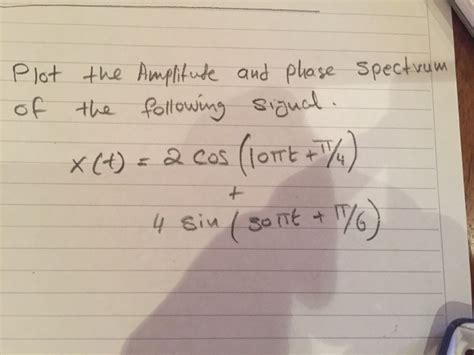 Plot the Amplitude and phase spectrum
of the following signal.
x(t) = 2 cos (10πt + π/4)
+
4 sin (50πt + π/6)